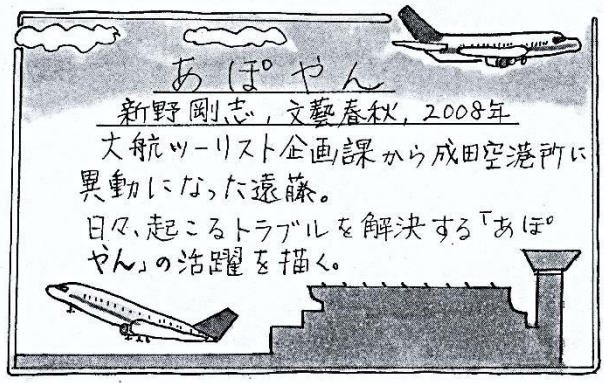 あぽやん
新野剛志，文藝春秋，2008年
大航ツーリスト企画課から成田空港所に
異動になった遠藤。
日々、起こるトラブルを解決する「あぽ
やん」の活躍を描く。